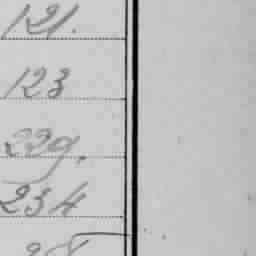 121.
123
229.
234